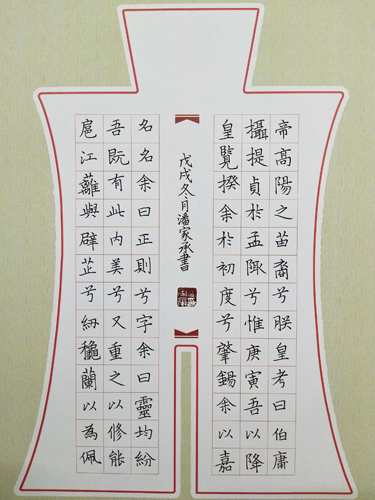 帝高陽之苗裔兮朕皇考曰伯庸
攝提貞於孟陬兮惟庚寅吾以降
皇覽揆余於初度兮肇錫余以嘉
名名余曰正則兮字余曰靈均紛
吾既有此內美兮又重之以修能
扈江蘺與辟芷兮紉穐蘭以為佩
戊戌冬月潘家承書